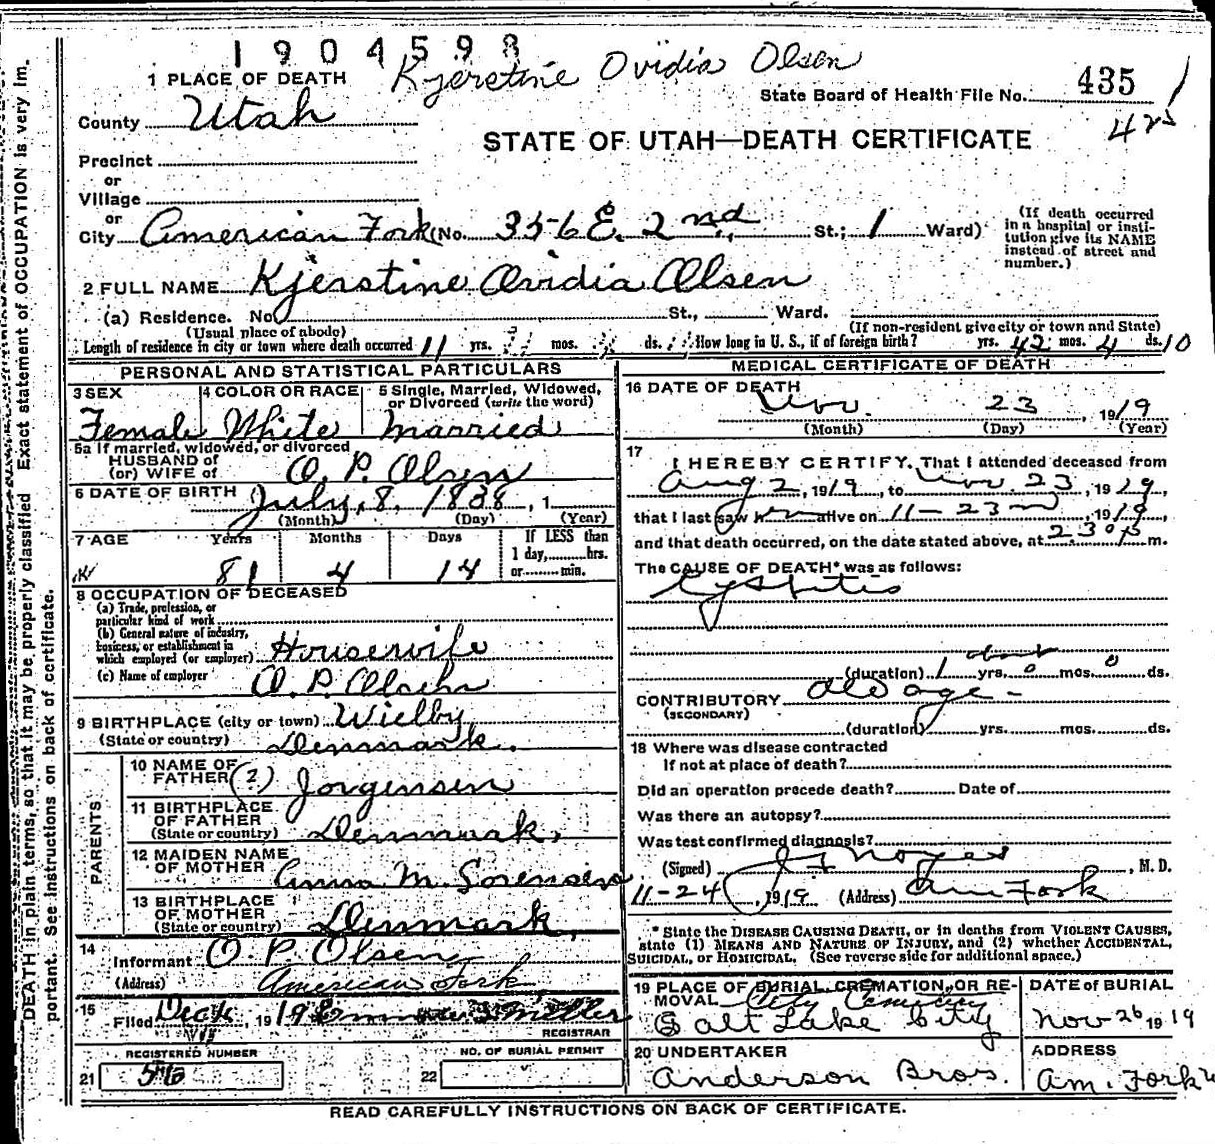 1904598
Kjerstine Ovidia Olsen
1 PLACE OF DEATH
State Board of Health File No. 435
425
County Utah
STATE OF UTAH—DEATH CERTIFICATE
Precinct
or
Village
or
City American Fork (No. 356 E. 2nd St.; 1 Ward)
(If death occurred in a hospital or institution give its NAME instead of street and number.)
2 FULL NAME Kjerstine Ovidia Olsen
(a) Residence. No. St., Ward.
(Usual place of abode) (If non-resident give city or town and State)
Length of residence in city or town where death occurred 11 yrs. mos. ds. How long in U. S., if of foreign birth? yrs. 42 mos. 4 ds. 10
PERSONAL AND STATISTICAL PARTICULARS
3 SEX
Female
4 COLOR OR RACE
White
5 Single, Married, Widowed, or Divorced (write the word)
Married
5a If married, widowed, or divorced
HUSBAND of
(or) WIFE of O. P. Olsen
6 DATE OF BIRTH July, 8, 1838, 1
(Month) (Day) (Year)
7 AGE Years Months Days If LESS than
1 day, hrs.
or min.
81 4 14
8 OCCUPATION OF DECEASED
(a) Trade, profession, or particular kind of work
(b) General nature of industry, business, or establishment in which employed (or employer) Housewife
(c) Name of employer O. P. Olsen
9 BIRTHPLACE (city or town) Wielby,
(State or country) Denmark.
PARENTS
10 NAME OF FATHER (?) Jorgensen
11 BIRTHPLACE OF FATHER
(State or country) Denmark,
12 MAIDEN NAME OF MOTHER Anna M. Sorensen
13 BIRTHPLACE OF MOTHER
(State or country) Denmark,
14
Informant O. P. Olsen,
(Address) American Fork
15
Filed Dec , 1919 Miller
REGISTRAR
REGISTERED NUMBER
21
NO. OF BURIAL PERMIT
22
MEDICAL CERTIFICATE OF DEATH
16 DATE OF DEATH
Nov. 23, 1919
(Month) (Day) (Year)
17
I HEREBY CERTIFY, That I attended deceased from
Aug 2, 1919, to Nov. 23, 1919,
that I last saw h alive on 11-23, 1919,
and that death occurred, on the date stated above, at 2.30 p m.
The CAUSE OF DEATH* was as follows:
Cystitis
about
(duration) 1 yrs. 0 mos. 0 ds.
CONTRIBUTORY Old age -
(SECONDARY)
(duration) yrs. mos. ds.
18 Where was disease contracted
If not at place of death?
Did an operation precede death? Date of
Was there an autopsy?
Was test confirmed diagnosis?
(Signed) Noyes, M. D.
11-24, 1919 (Address) Am Fork
* State the DISEASE CAUSING DEATH, or in deaths from VIOLENT CAUSES, state (1) MEANS AND NATURE OF INJURY, and (2) whether ACCIDENTAL, SUICIDAL, or HOMICIDAL. (See reverse side for additional space.)
19 PLACE OF BURIAL, CREMATION, OR REMOVAL City Cemetery
Salt Lake City
DATE of BURIAL
Nov 26 1919
20 UNDERTAKER
Anderson Bros.
ADDRESS
Am. Fork
READ CAREFULLY INSTRUCTIONS ON BACK OF CERTIFICATE.
DEATH in plain terms, so that it may be properly classified. Exact statement of OCCUPATION is very important. See instructions on back of certificate.